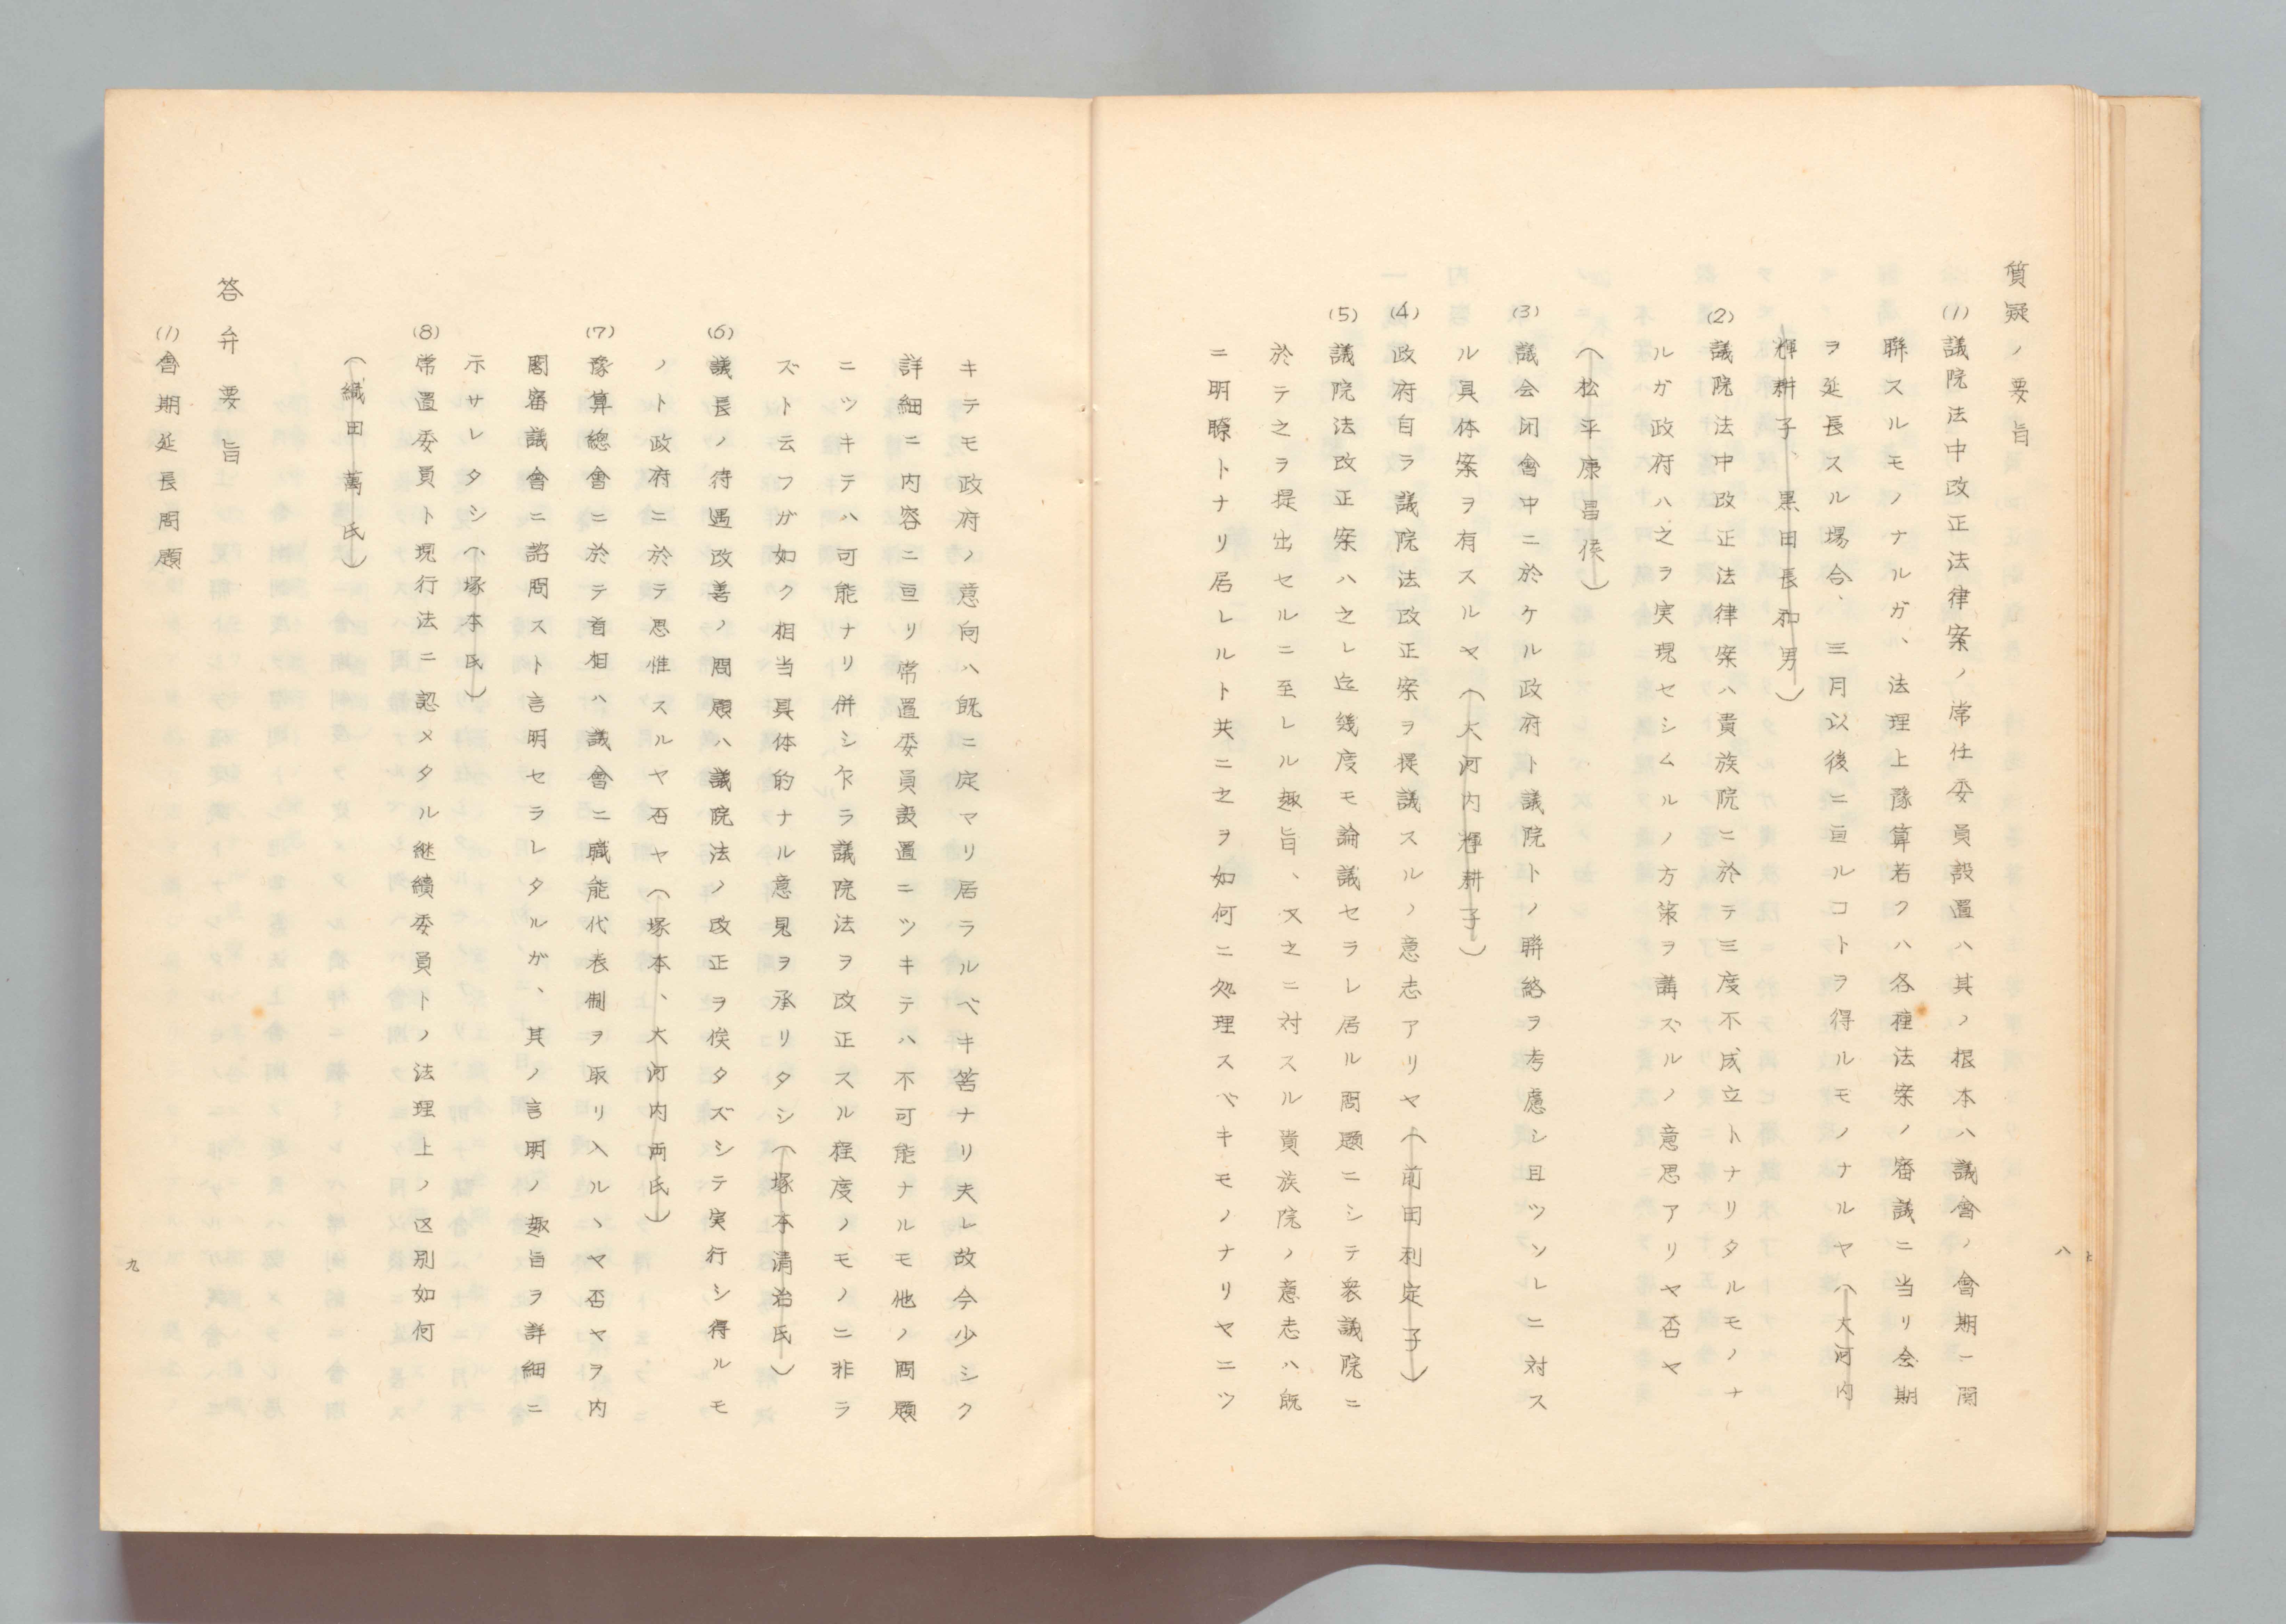 質疑ノ要旨
(1)議院法中改正法律案ノ常任委員設置ハ其ノ根本ハ議會ノ會期ニ関
聯スルモノナルガ、法理上豫算若クハ各種法案ノ審議ニ当リ会期
ヲ延長スル場合、三月以後ニ亘ルコトヲ得ルモノナルヤ(大河内
輝耕子、黒田長和男)
(2)議院法中改正法律案ハ貴族院ニ於テ三度不成立トナリタルモノナ
ルガ政府ハ之ヲ実現セシムルノ方策ヲ講ズルノ意思アリヤ否ヤ
(松平康昌侯)
(3)議会閉會中ニ於ケル政府ト議院トノ聯絡ヲ考慮シ且ツソレニ対ス
ル具体案ヲ有スルヤ(大河内輝耕子)
(4)政府自ラ議院法改正案ヲ提議スルノ意志アリヤ(前田利定子)
(5)議院法改正案ハ之レ迄幾度モ論議セラレ居ル問題ニシテ衆議院ニ
於テ之ヲ提出セルニ至レル趣旨、又之ニ対スル貴族院ノ意志ハ既
ニ明瞭トナリ居レルト共ニ之ヲ如何ニ処理スベキモノナリヤニツ
八
キテモ政府ノ意向ハ既ニ定マリ居ラルベキ筈ナリ夫レ故今少シク
詳細ニ内容ニ亘リ常置委員設置ニツキテハ不可能ナルモ他ノ問題
ニツキテハ可能ナリ併シ乍ラ議院法ヲ改正スル程度ノモノニ非ラ
ズト云フガ如ク相当具体的ナル意見ヲ承リタシ(塚本清治氏)
(6)議長ノ待遇改善ノ問題ハ議院法ノ改正ヲ俟タズシテ実行シ得ルモ
ノト政府ニ於テ思惟スルヤ否ヤ(塚本、大河内両氏)
(7)豫算總會ニ於テ首相ハ議會ニ職能代表制ヲ取リ入ルヽヤ否ヤヲ内
閣審議會ニ諮問スト言明セラレタルガ、其ノ言明ノ趣旨ヲ詳細ニ
示サレタシ(塚本氏)
(8)常置委員ト現行法ニ認メタル継續委員トノ法理上ノ区別如何
(織田萬氏)
答弁要旨
(1)會期延長問題
九